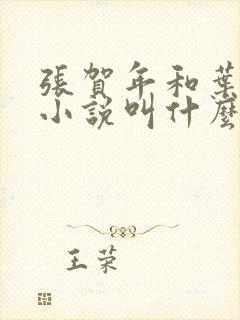 張賀年和葉
小說叫什麼
王荣